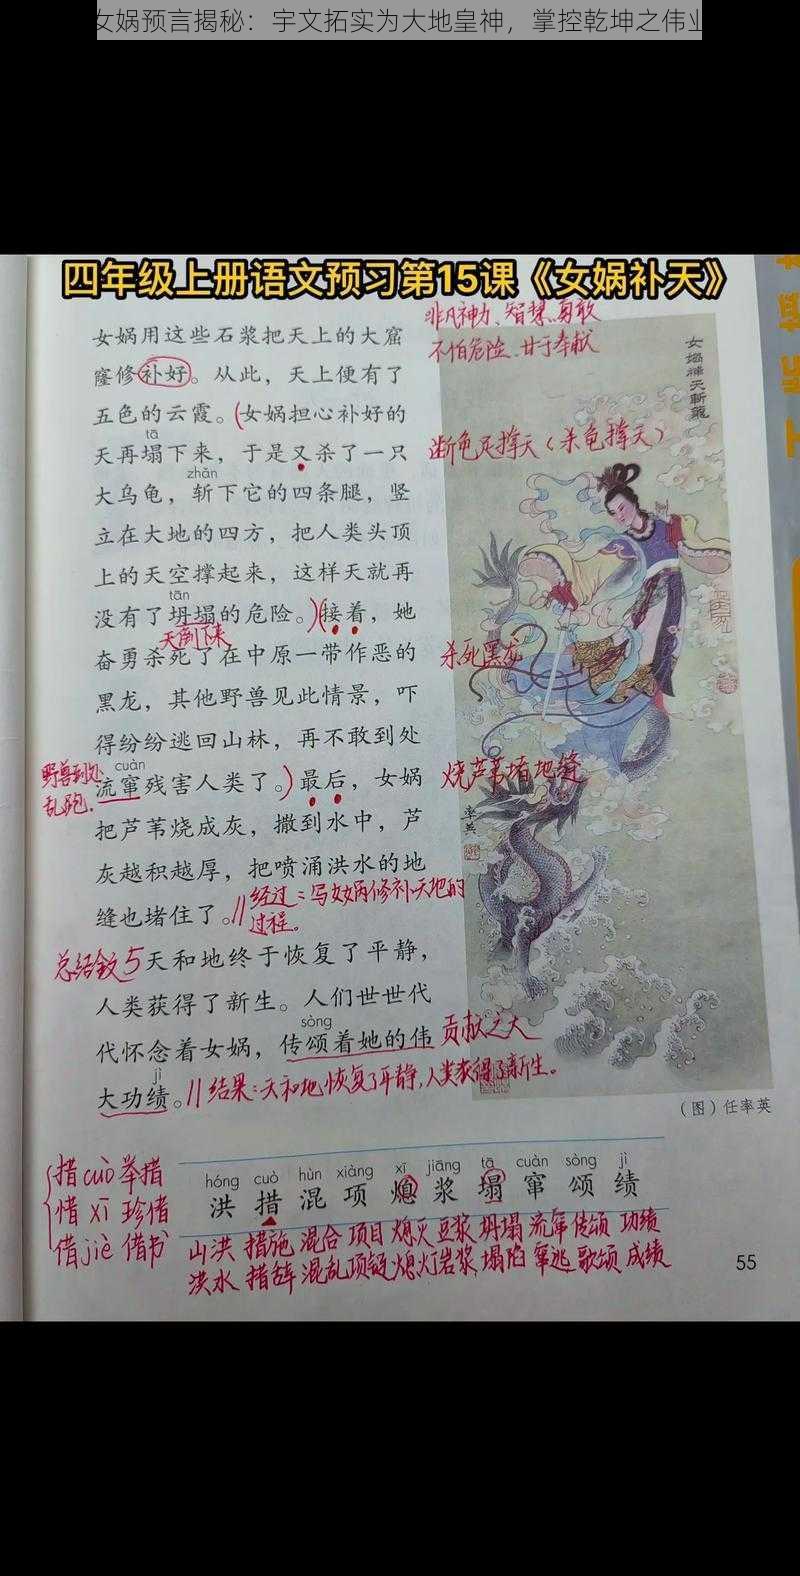 女娲预言揭秘：宇文拓实为大地皇神，掌控乾坤之伟业
四年级上册语文预习第15课《女娲补天》
女娲用这些石浆把天上的大窟
窿修补好。从此，天上便有了
五色的云霞。(女娲担心补好的
tā
天再塌下来，于是又杀了一只
zhǎn
大乌龟，斩下它的四条腿，竖
立在大地的四方，把人类头顶
上的天空撑起来，这样天就再
tān
没有了坍塌的危险。)(接着，她
天倒下来
奋勇杀死了在中原一带作恶的
黑龙，其他野兽见此情景，吓
得纷纷逃回山林，再不敢到处
cuàn
流窜残害人类了。)最后，女娲
野兽到处
乱跑.
把芦苇烧成灰，撒到水中，芦
灰越积越厚，把喷涌洪水的地
缝也堵住了。
//经过：写女娲修补天地的
过程。
总结全文5
天和地终于恢复了平静，
人类获得了新生。人们世世代
sòng
代怀念着女娲，传颂着她的伟
jì
大功绩。
贡献之大
//结果：天和地恢复了平静,人类获得了新生。
非凡神力、智慧、勇敢
不怕危险、甘于奉献
断龟足撑天(杀龟撑天)
杀死黑龙
烧芦苇堵地缝
女娲补天斩龙
率英
(图)任率英
措 cuò 举措
惜 xī 珍惜
借 jiè 借书
hóng cuò hùn xiàng xī jiāng tā cuàn sòng jì
洪 措 混 项 熄 浆 塌 窜 颂 绩
山洪 措施 混合 项目 熄灭 豆浆 坍塌 流窜 传颂 功绩
洪水 措辞 混乱 项链 熄灯 岩浆 塌陷 窜逃 歌颂 成绩
55